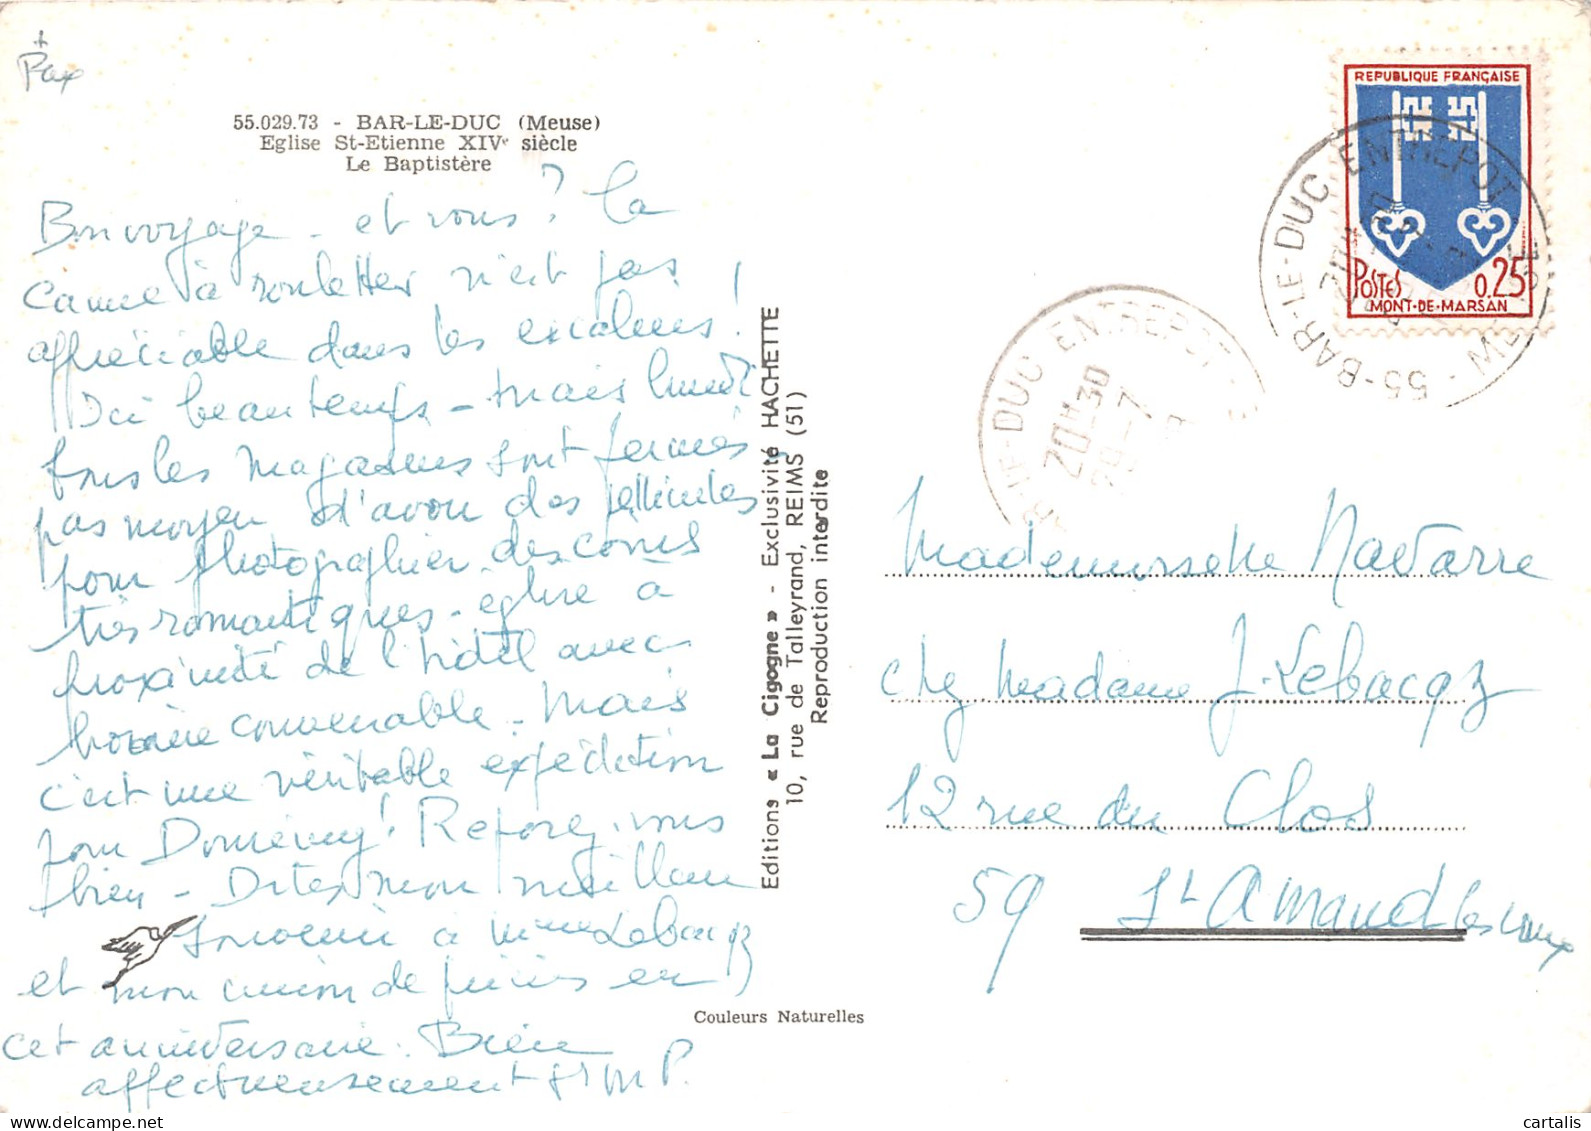 +
Pax
55.029.73 - BAR-LE-DUC (Meuse)
Eglise St-Etienne XIVe siècle
Le Baptistère
Bon voyage - et vous? la
canne à roulettes n'est pas
appréciable dans les escaliers!
Ici beau temps - mais lundi
tous les magasins sont fermés
pas moyen d'avoir des pellicules
pour photographier des coins
très romantiques - église à
proximité de l'hôtel avec
horaire convenable - Mais
c'est une véritable expédition
pour Domrémy! Reposez-vous
bien - Dites mon meilleur
souvenir à Mme Lebacqz
et mon union de prières en
cet anniversaire. Bien
affectueusement Sr M P.
Editions « La Cigogne » - Exclusivité HACHETTE
10, rue de Talleyrand, REIMS (51)
Reproduction interdite
Couleurs Naturelles
REPUBLIQUE FRANÇAISE
POSTES 0,25
MONT-DE-MARSAN
55-BAR-LE-DUC ENTREPOT
R-LE-DUC ENTREPOT
20H30
-7
Mademoiselle Navarre
chez Madame J. Lebacqz
12 rue du Clos
59 St Amand les eaux
cartalis